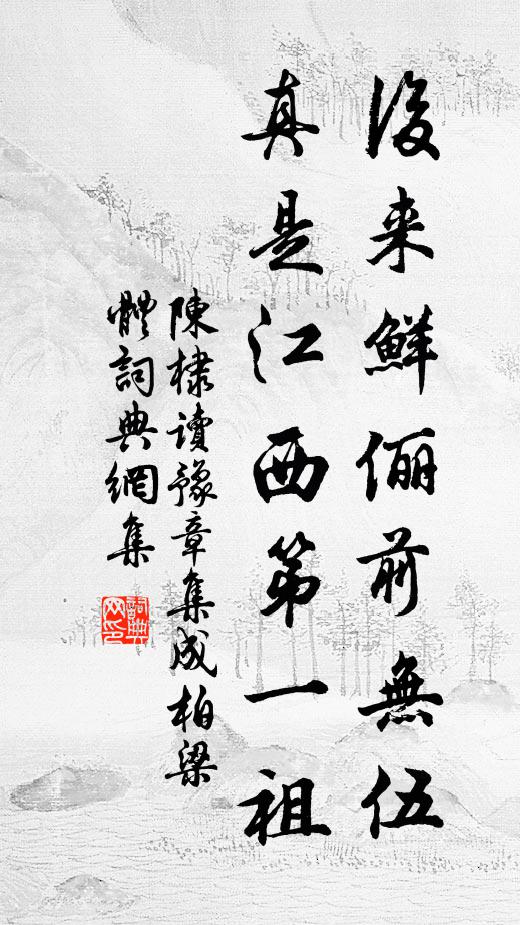 後来鮮儷前無伍
真是江西第一祖
陳棣讀豫章集成柏梁
體詞典網集
詞典網印